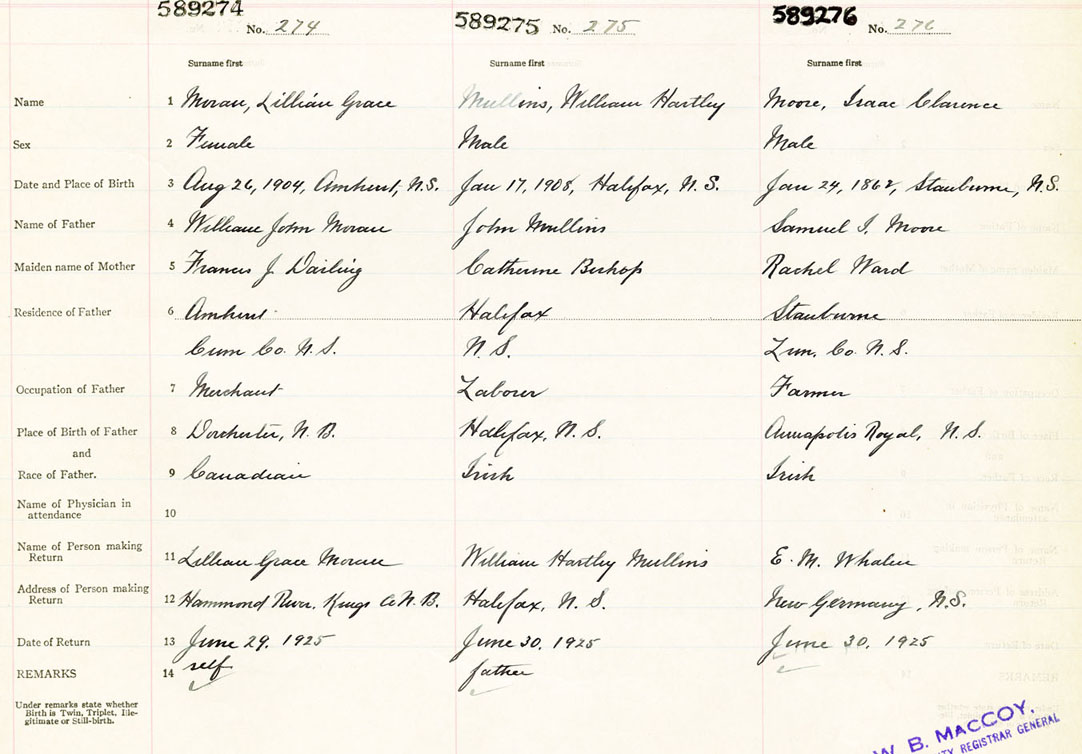 589274 No. 274 589275 No. 275 589276 No. 276
Surname first Surname first Surname first
Name 1 Moran, Lillian Grace Mullins, William Hartley Moore, Isaac Clarence
Sex 2 Female Male Male
Date and Place of Birth 3 Aug 26, 1904, Amherst, N.S. Jan 17, 1908, Halifax, N.S. Jan 24, 1862, Stanburne, N.S.
Name of Father 4 William John Moran John Mullins Samuel I. Moore
Maiden name of Mother 5 Francis J. Darling Catherine Bishop Rachel Ward
Residence of Father 6 Amherst Halifax Stanburne
Cum Co. N.S. N.S. Lun. Co. N.S.
Occupation of Father 7 Merchant Laborer Farmer
Place of Birth of Father 8 Dorchester, N.B. Halifax, N.S. Annapolis Royal, N.S.
and
Race of Father. 9 Canadian Irish Irish
Name of Physician in
attendance 10
Name of Person making
Return 11 Lillian Grace Moran William Hartley Mullins E. M. Whalen
Address of Person making
Return 12 Hammond River, Kings Co N.B. Halifax, N.S. New Germany, N.S.
Date of Return 13 June 29, 1925 June 30, 1925 June 30, 1925
REMARKS 14 self father
Under remarks state whether
Birth is Twin, Triplet, Ille-
gitimate or Still-birth.
W. B. MACCOY.
REGISTRAR GENERAL